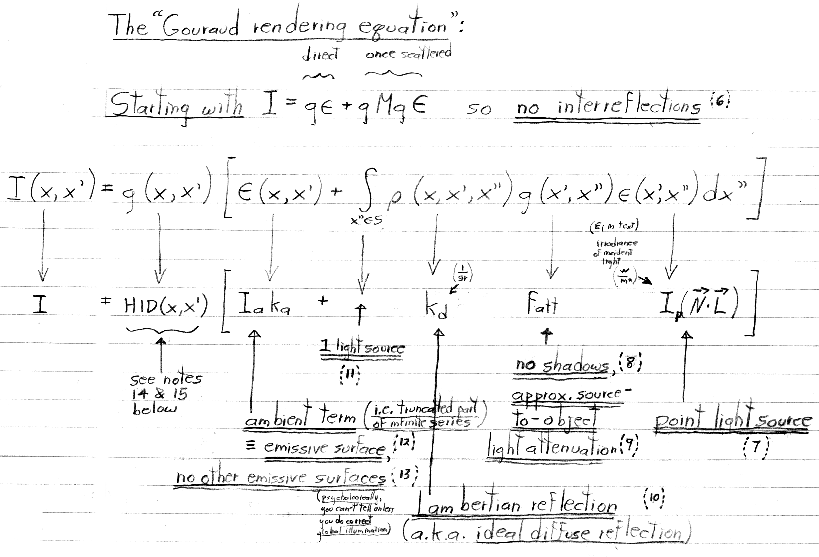 The "Gouraud rendering equation":
direct once scattered
Starting with I = gϵ + gMgϵ so no interreflections (6)
I(x,x') = g(x,x') [ϵ(x,x') + ∫ x"∈S ρ(x,x',x")g(x',x")ϵ(x',x")dx"]
(Ei in text)
irradiance
of incident
light
(1/sr) (W/m²)
I = HID(x,x') [Iaka + kd fatt Ip(N·L)]
1 light source
(11)
see notes
14 & 15
below
no shadows, (8)
approx. source-
to-object
light attenuation (9)
point light source
(7)
ambient term (i.e. truncated part
of infinite series)
≡ emissive surface, (12)
no other emissive surfaces (13)
(psychologically,
you can't tell unless
you do correct
global illumination)
Lambertian reflection (10)
(a.k.a. ideal diffuse reflection)